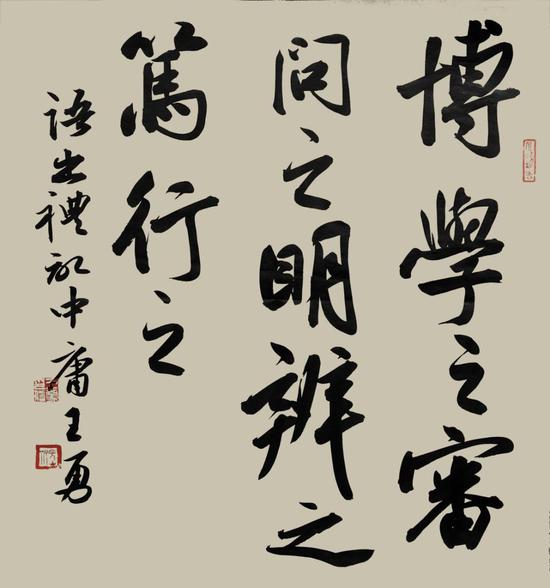 博學之審
問之明辨之
篤行之
語出禮記中庸王勇